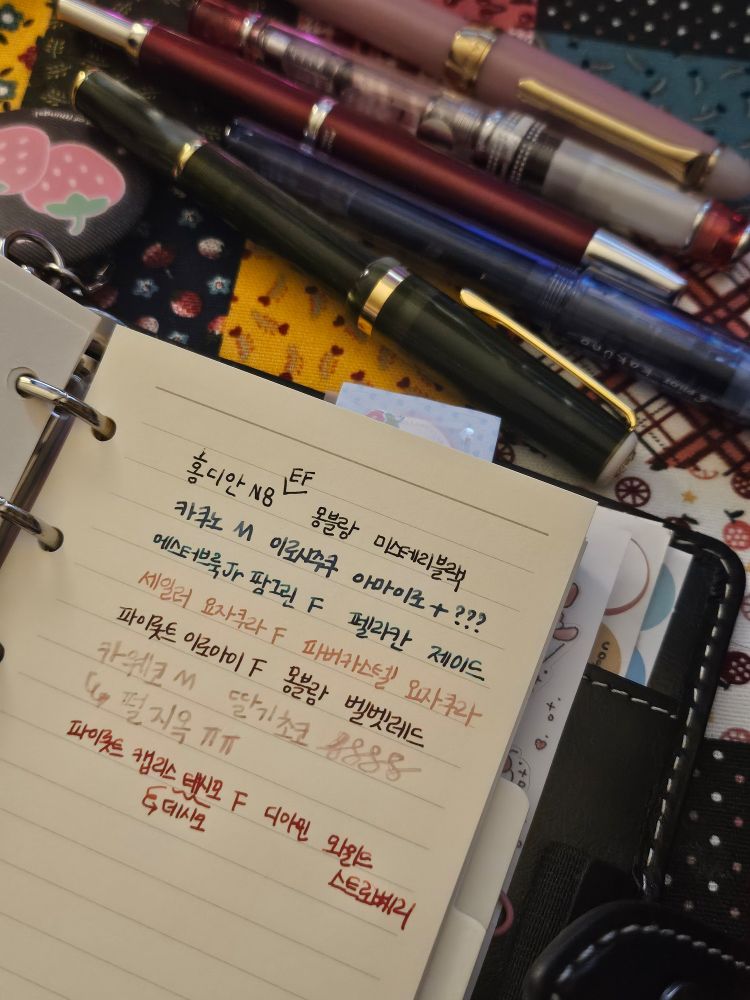 홍디안 N8 EF 몽블랑 미스테리블랙
카쿠노 M 이로시주쿠 아마이로 + ???
에스터브룩 Jr 팜그린 F 펠리칸 제이드
세일러 요자쿠라 F 파버카스텔 요자쿠라
파이롯트 이로아이 F 몽블랑 벨벳레드
카웨코 M 딸기초코
↳ 펄지옥 ㅠㅠ
파이롯트 캡리스 뎃시모 F 디아민 와일드
↳ 데시모 스트로베리
PILOT KAKUNO